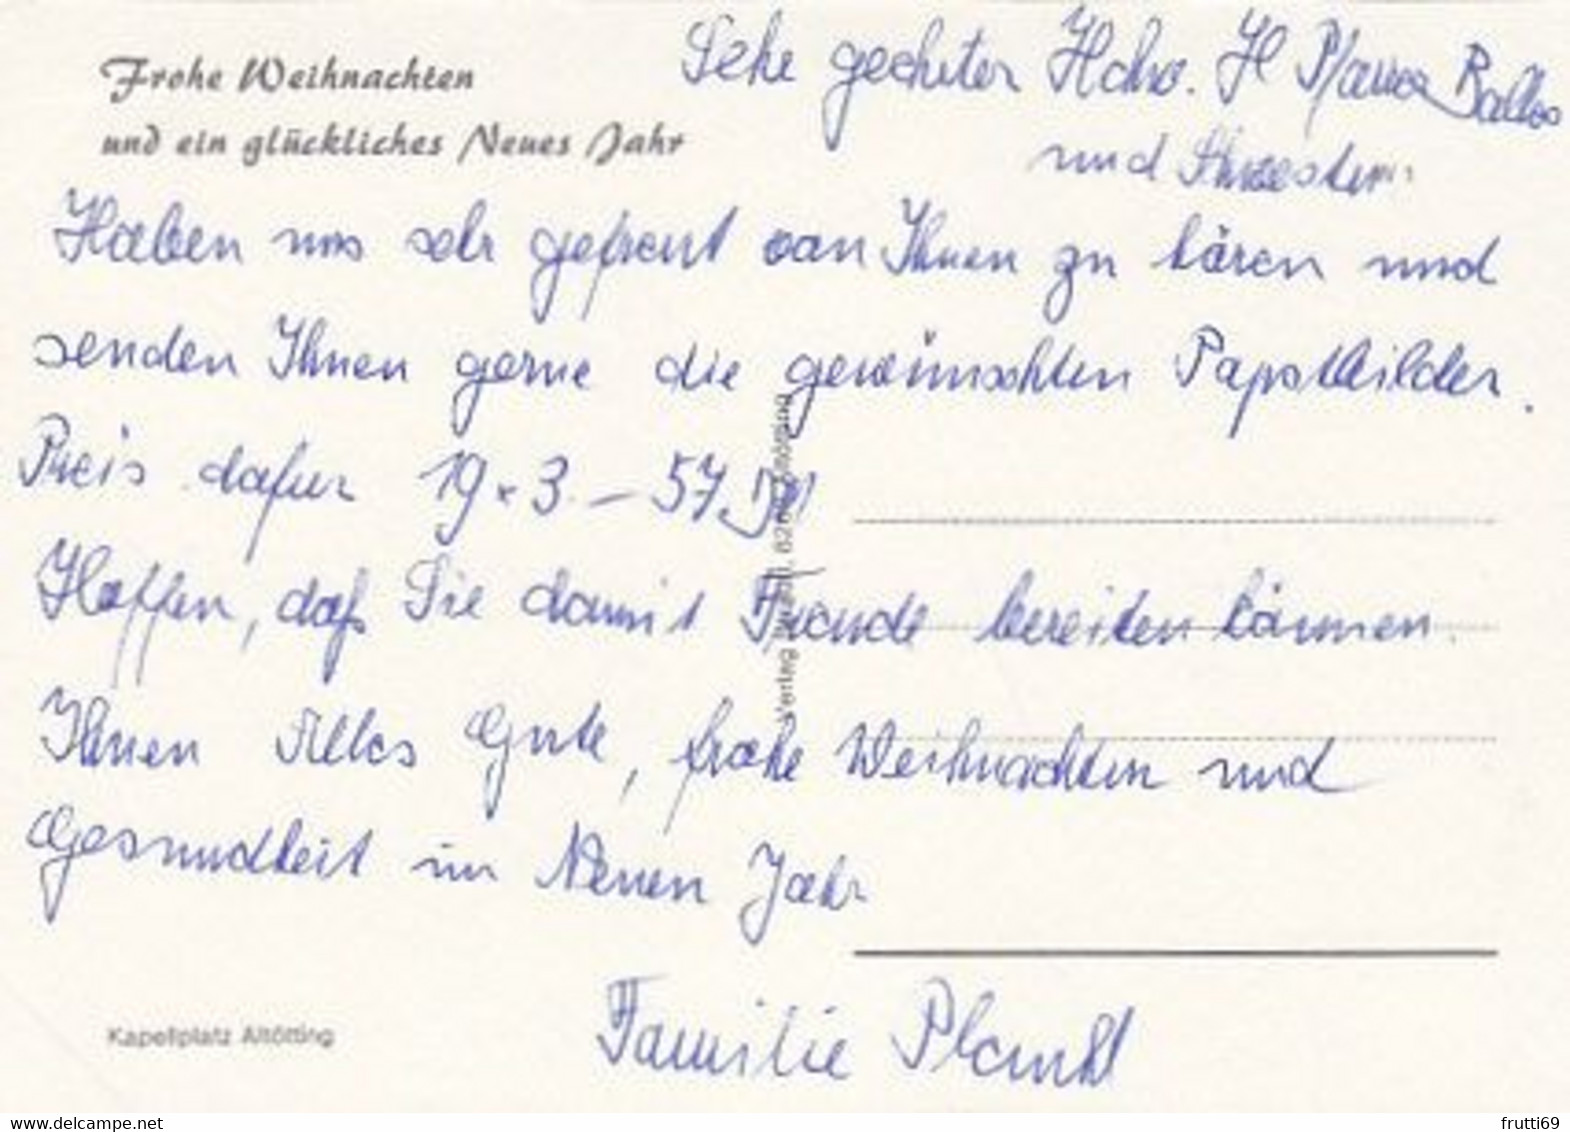 Frohe Weihnachten
und ein glückliches Neues Jahr
Sehr geehrter Hchw. H Pfarrer
und Schwestern
Haben uns sehr gefreut von Ihnen zu hören und
senden Ihnen gerne die gewünschten Papstbilder.
Preis dafür 19 x 3.- 57 DM
Hoffen, daß Sie damit Freude bereiten können.
Ihnen Alles Gute, frohe Weihnachten und
Gesundheit im Neuen Jahr
Familie
Verlag Altötting
Kapellplatz Altötting
www.delcampe.net
frutti69